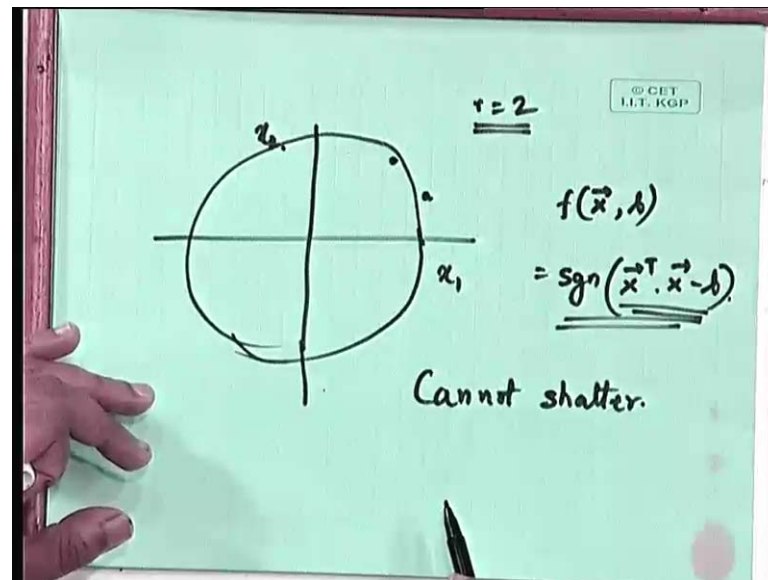 r = 2
© CET
I.I.T. KGP
x₂
a
x₁
f(x⃗, b)
= sgn(x⃗ᵀ. x⃗ - b).
Cannot shatter.